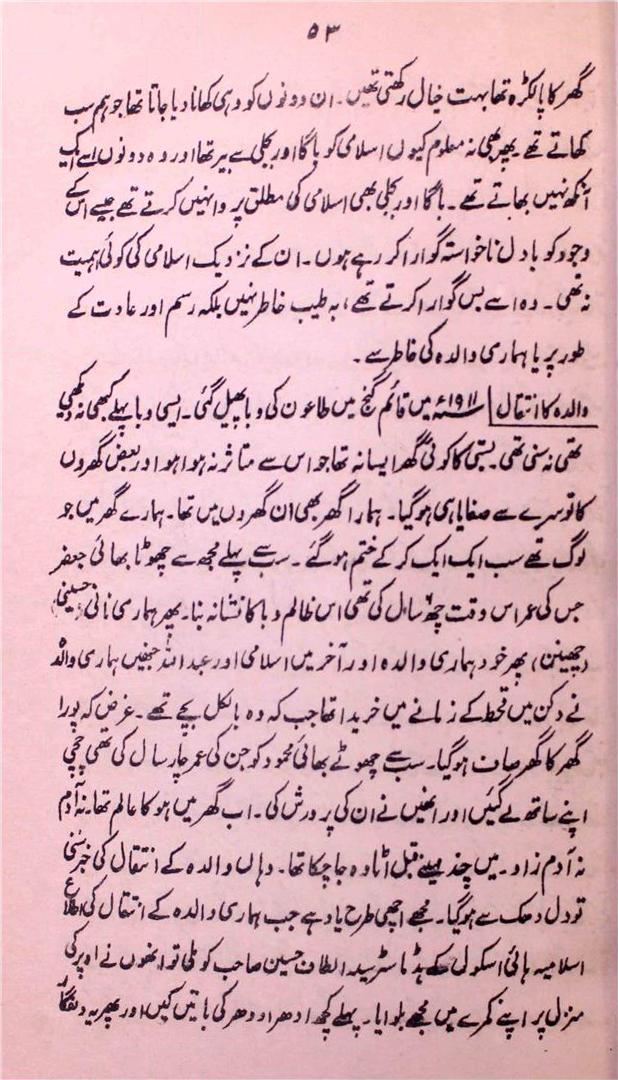 ۵۳
گھر کا پالکڑہ تھا بہت خیال رکھتی تھیں۔ ان دونوں کو وہی کھانا دیا جاتا تھا جو ہم سب
کھاتے تھے۔ پھر بھی نہ معلوم کیوں اسلامی کو باگا اور کلی سے بیر تھا اور وہ دونوں اسے ایک
آنکھ نہیں بھاتے تھے۔ باگا اور کلی بھی اسلامی کی مطلق پروا نہیں کرتے تھے جیسے اس کے
وجود کو بادل ناخواستہ گوارا کر رہے ہوں۔ ان کے نزدیک اسلامی کی کوئی اہمیت
نہ تھی۔ وہ اسے بس گوارا کرتے تھے، بہ طیب خاطر نہیں بلکہ رسم اور عادت کے
طور پر یا ہماری والدہ کی خاطر سے۔
والدہ کا انتقال ۱۹۱۱ء میں قائم گنج میں طاعون کی وبا پھیل گئی۔ ایسی وبا پہلے کبھی نہ دیکھی
تھی نہ سنی تھی۔ بستی کا کوئی گھر ایسا نہ تھا جو اس سے متاثر نہ ہوا ہو اور بعض گھروں
کا تو سرے سے صفایا ہی ہو گیا۔ ہمارا گھر بھی ان گھروں میں تھا۔ ہمارے گھر میں جو
لوگ تھے سب ایک ایک کر کے ختم ہو گئے۔ سب سے پہلے مجھ سے چھوٹا بھائی جعفر
جس کی عمر اس وقت چھ سال کی تھی اس ظالم وبا کا نشانہ بنا۔ پھر ہماری نانی (حسینی
چھینن) پھر خود ہماری والدہ اور آخر میں اسلامی اور عبداللہ جنھیں ہماری والدہ
نے دکن میں قحط کے زمانے میں خریدا تھا جب کہ وہ بالکل بچے تھے۔ غرض کہ پورا
گھر کا گھر صاف ہو گیا۔ سب سے چھوٹے بھائی محمود کو جن کی عمر چار سال کی تھی چچی
اپنے ساتھ لے گئیں اور انھیں نے ان کی پرورش کی۔ اب گھر میں ہو کا عالم تھا۔ نہ آدم
نہ آدم زاد۔ میں چند مہینے قبل اٹاوہ جا چکا تھا۔ وہاں والدہ کے انتقال کی خبر سنی
تو دل دھک سے ہو گیا۔ مجھے اچھی طرح یاد ہے جب ہماری والدہ کے انتقال کی اطلاع
اسلامیہ ہائی اسکول کے ہیڈ ماسٹر سید الطاف حسین صاحب کو ملی تو انھوں نے اوپر کی
منزل پر اپنے کمرے میں مجھے بلوایا۔ پہلے کچھ ادھر اودھر کی باتیں کیں اور پھر یہ